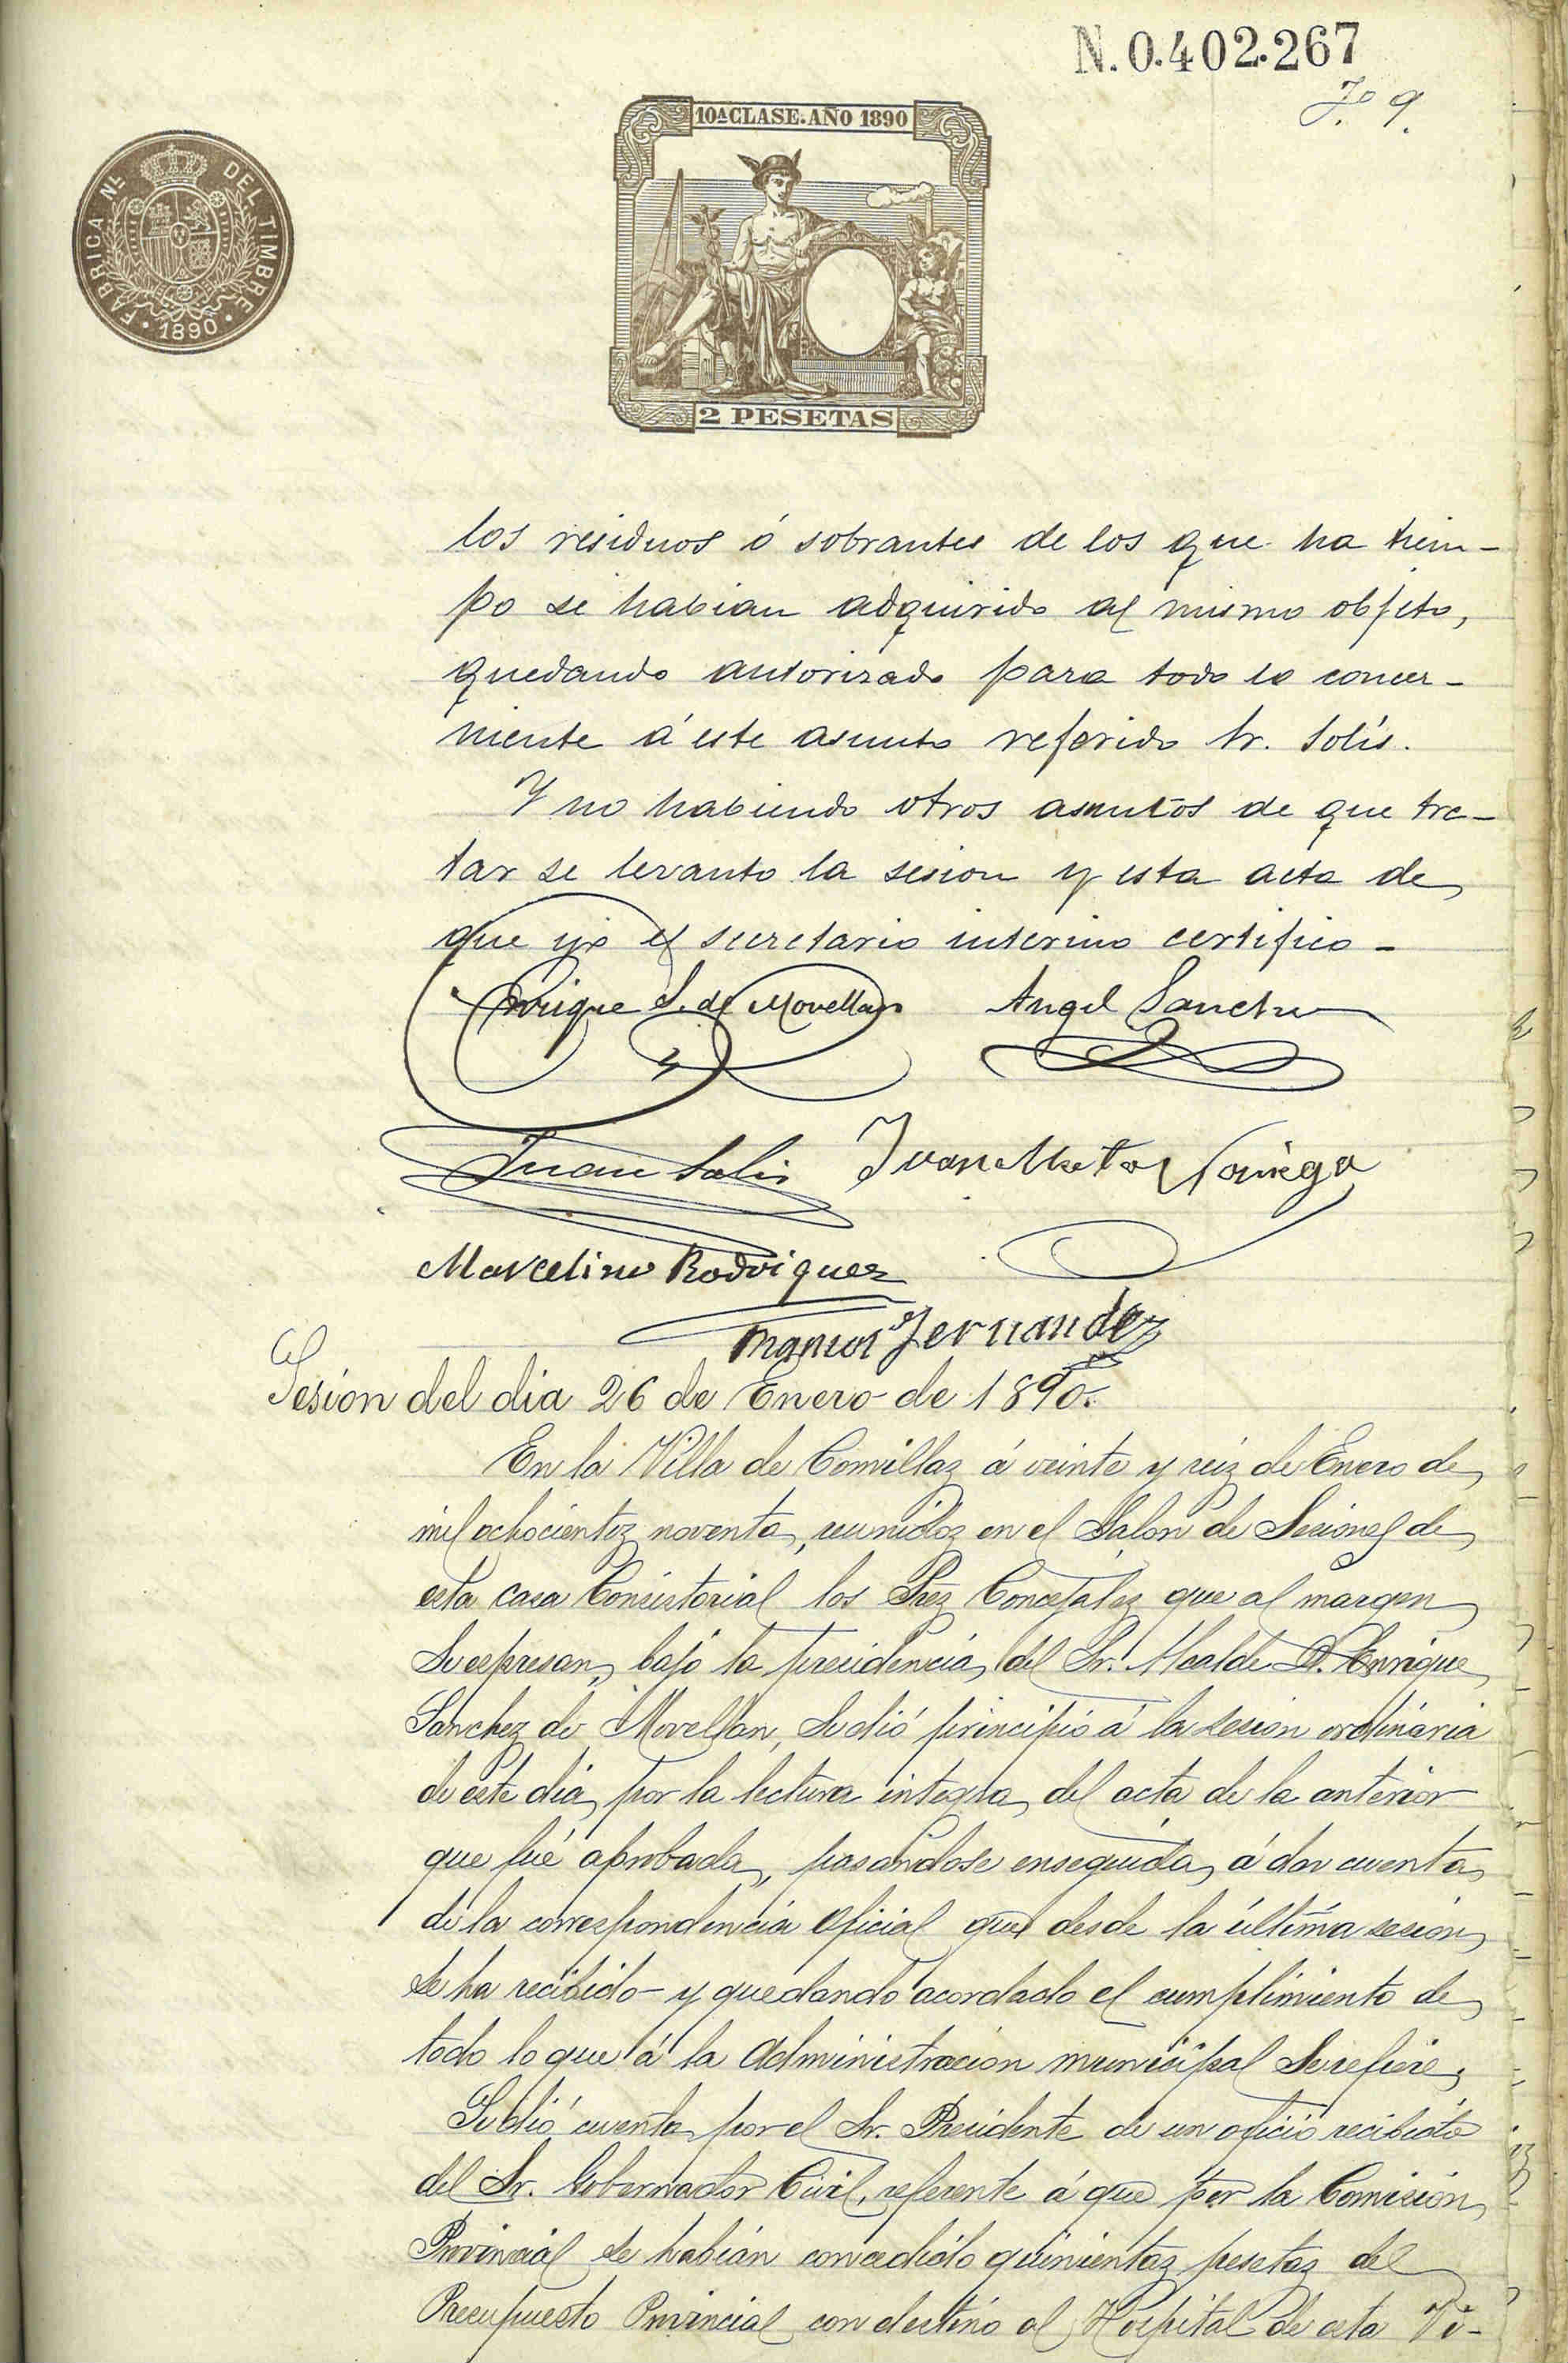 N. 0.402.267
Fº 9.
10ª CLASE. AÑO 1890
FABRICA Nᴸ DEL TIMBRE
· 1890 ·
2 PESETAS
los residuos ó sobrantes de los que ha tiem-
po se habian adquirido al mismo objeto,
quedando autorizado para todo lo concer-
niente á este asunto referido Sr. Solís.
Y no habiendo otros asuntos de que tra-
tar se levanto la sesion y esta acta de
que yo el secretario interino certifico -
Enrique S. de Movellan Angel Sanchez
Juan Solis Juan Noriega
Marcelino Rodriguez
Manuel Fernandez
Sesion del dia 26 de Enero de 1890.
En la Villa de Comillas á veinte y seis de Enero de
mil ochocientos noventa, reunidos en el Salon de Sesiones de
esta casa Consistorial los Sres Concejales que al margen
Se espresan, bajo la presidencia del Sr. Alcalde D. Enrique
Sanchez de Movellan, Se dió principio á la sesion ordinaria
de este dia, por la lectura integra del acta de la anterior
que fué aprobada, pasandose enseguida á dar cuenta
de la correspondencia Oficial que desde la última sesion
se ha recibido y quedando acordado el cumplimiento de
todo lo que á la Administracion municipal Se refiere,
Se dió cuenta por el Sr. Presidente de un oficio recibido
del Sr. Gobernador Civil, referente á que por la Comision
Provincial se habian concedido quinientas pesetas del
Presupuesto Provincial con destino al Hospital de esta Vi-